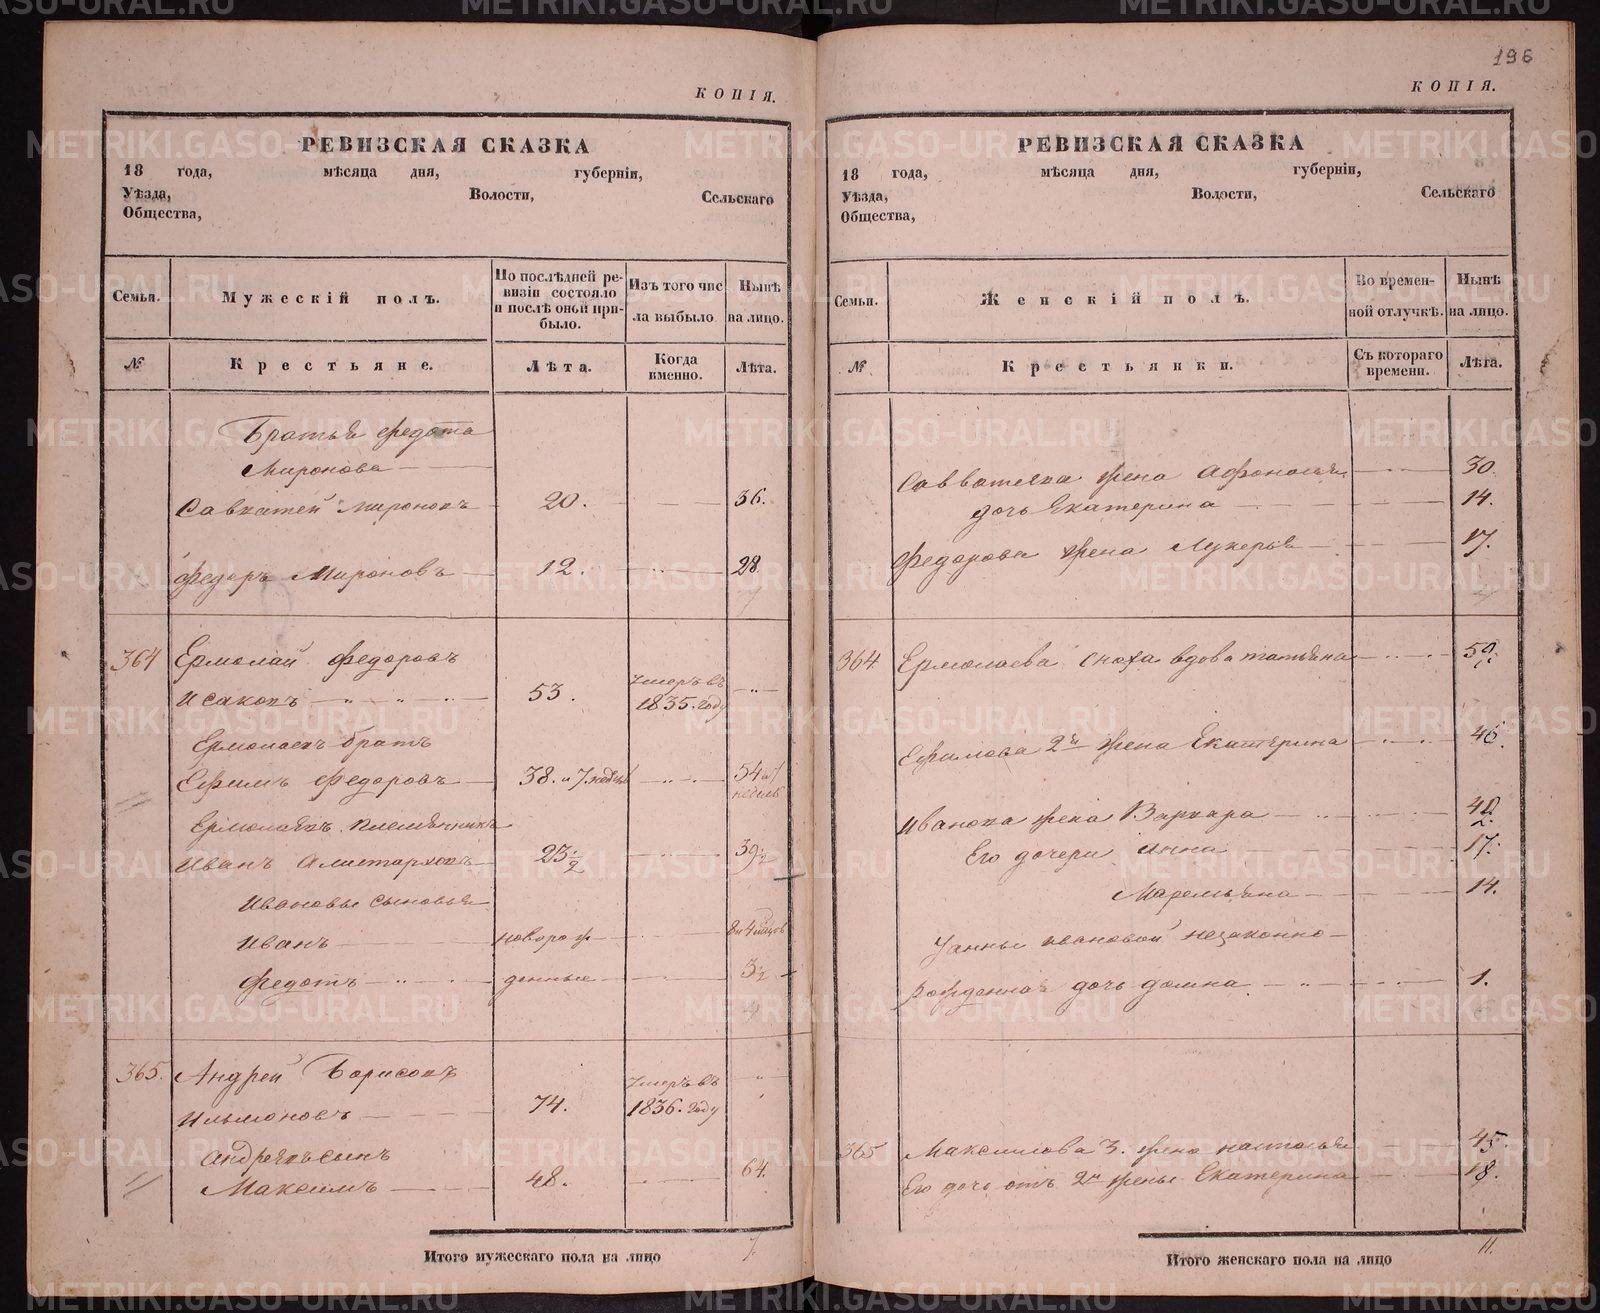 196
КОПІЯ.
РЕВИЗСКАЯ СКАЗКА
18 года, мѣсяца дня, губерніи,
Уѣзда, Волости, Сельскаго
Общества,
Семьи. Мужескій полъ. По послѣдней ревизіи состояло и послѣ оной прибыло. Изъ того числа выбыло Нынѣ на лицо.
№ Крестьяне. Лѣта. Когда именно. Лѣта.
Братья Федота
Миронова
Савватей Мироновъ 20. 36.
Федоръ Мироновъ 12. 28
364 Ермолай Федоровъ
Исаковъ 53. Умеръ въ 1835. году
Ермолаевъ братъ
Ефимъ Федоровъ 38. и 7 недель 54 и 7 недель
Ермолаевъ племянникъ
Иванъ Алистарховъ 23 1/2 39 1/2
Ивановы сыновья
Иванъ новорож 8 и 4 мѣсцов
Федотъ денные 3 1/2
4
365. Андрей Борисовъ
Ильмоновъ 74. Умеръ въ 1836. году
Андреевъ сынъ
Максимъ 48. 64.
Итого мужескаго пола на лицо 7.
КОПІЯ.
РЕВИЗСКАЯ СКАЗКА
18 года, мѣсяца дня, губерніи,
Уѣзда, Волости, Сельскаго
Общества,
Семьи. Женскій полъ. Во временной отлучкѣ. Нынѣ на лицо.
№ Крестьянки. Съ котораго времени. Лѣта.
Савватеева жена Афонасья 30.
дочь Екатерина 14.
Федорова жена Лукерья 17.
364 Ермолаева сноха вдова татьяна 50
Ефимова 2я жена Екатерина 46.
Иванова жена Варвара 40
Его дочери Анна 17.
Маремьяна 14.
У анны ивановой незаконно-
рожденная дочь домна 1.
365 Максимова 3. жена настасья 45
Его дочь отъ 2й жены Екатерина 18.
Итого женскаго пола на лицо 11.
METRIKI.GASO-URAL.RU